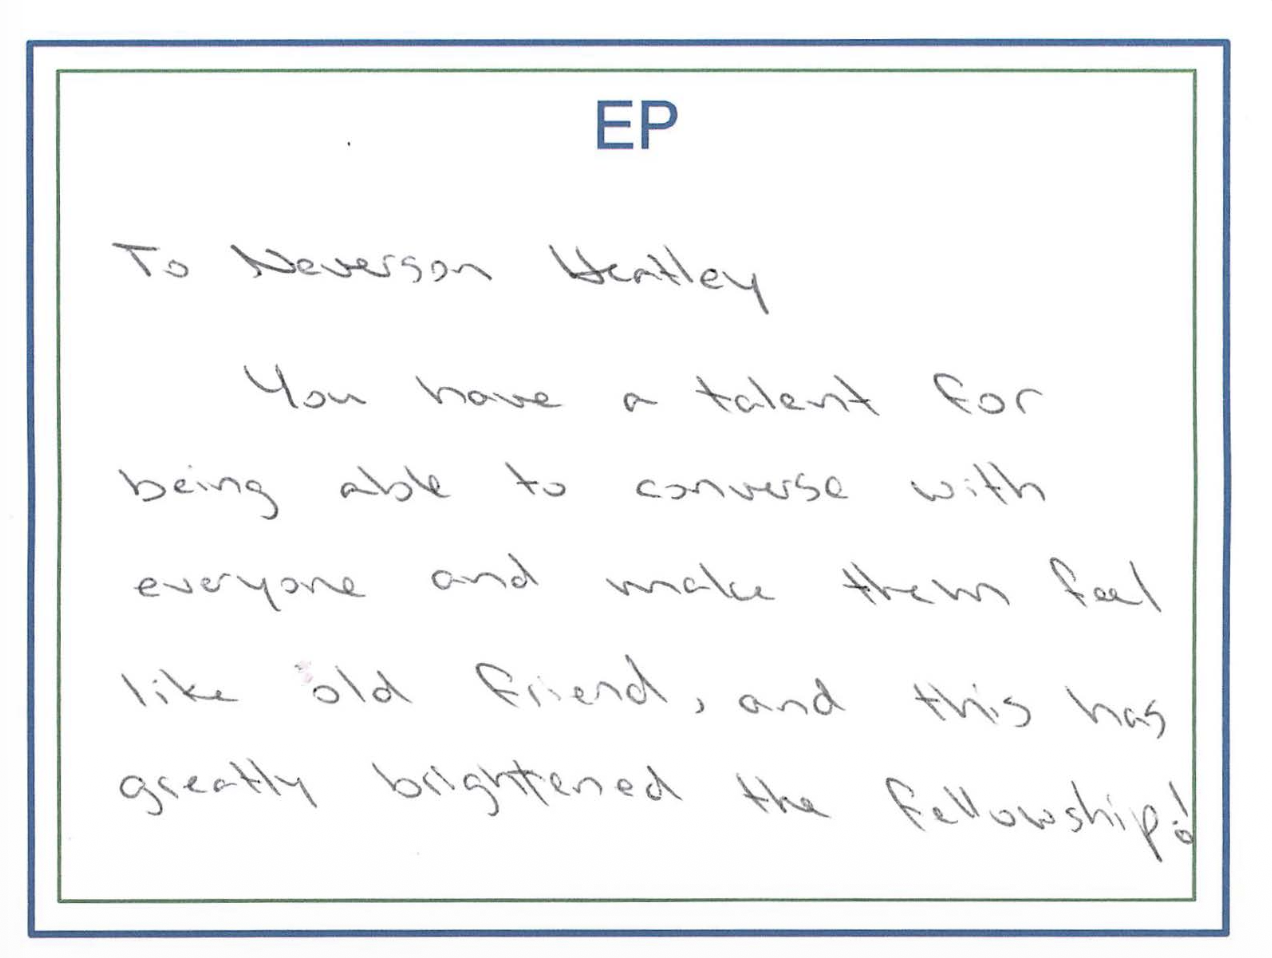 EP
To Neverson Hentley
You have a talent for
being able to converse with
everyone and make them feel
like old friend, and this has
greatly brightened the fellowship!